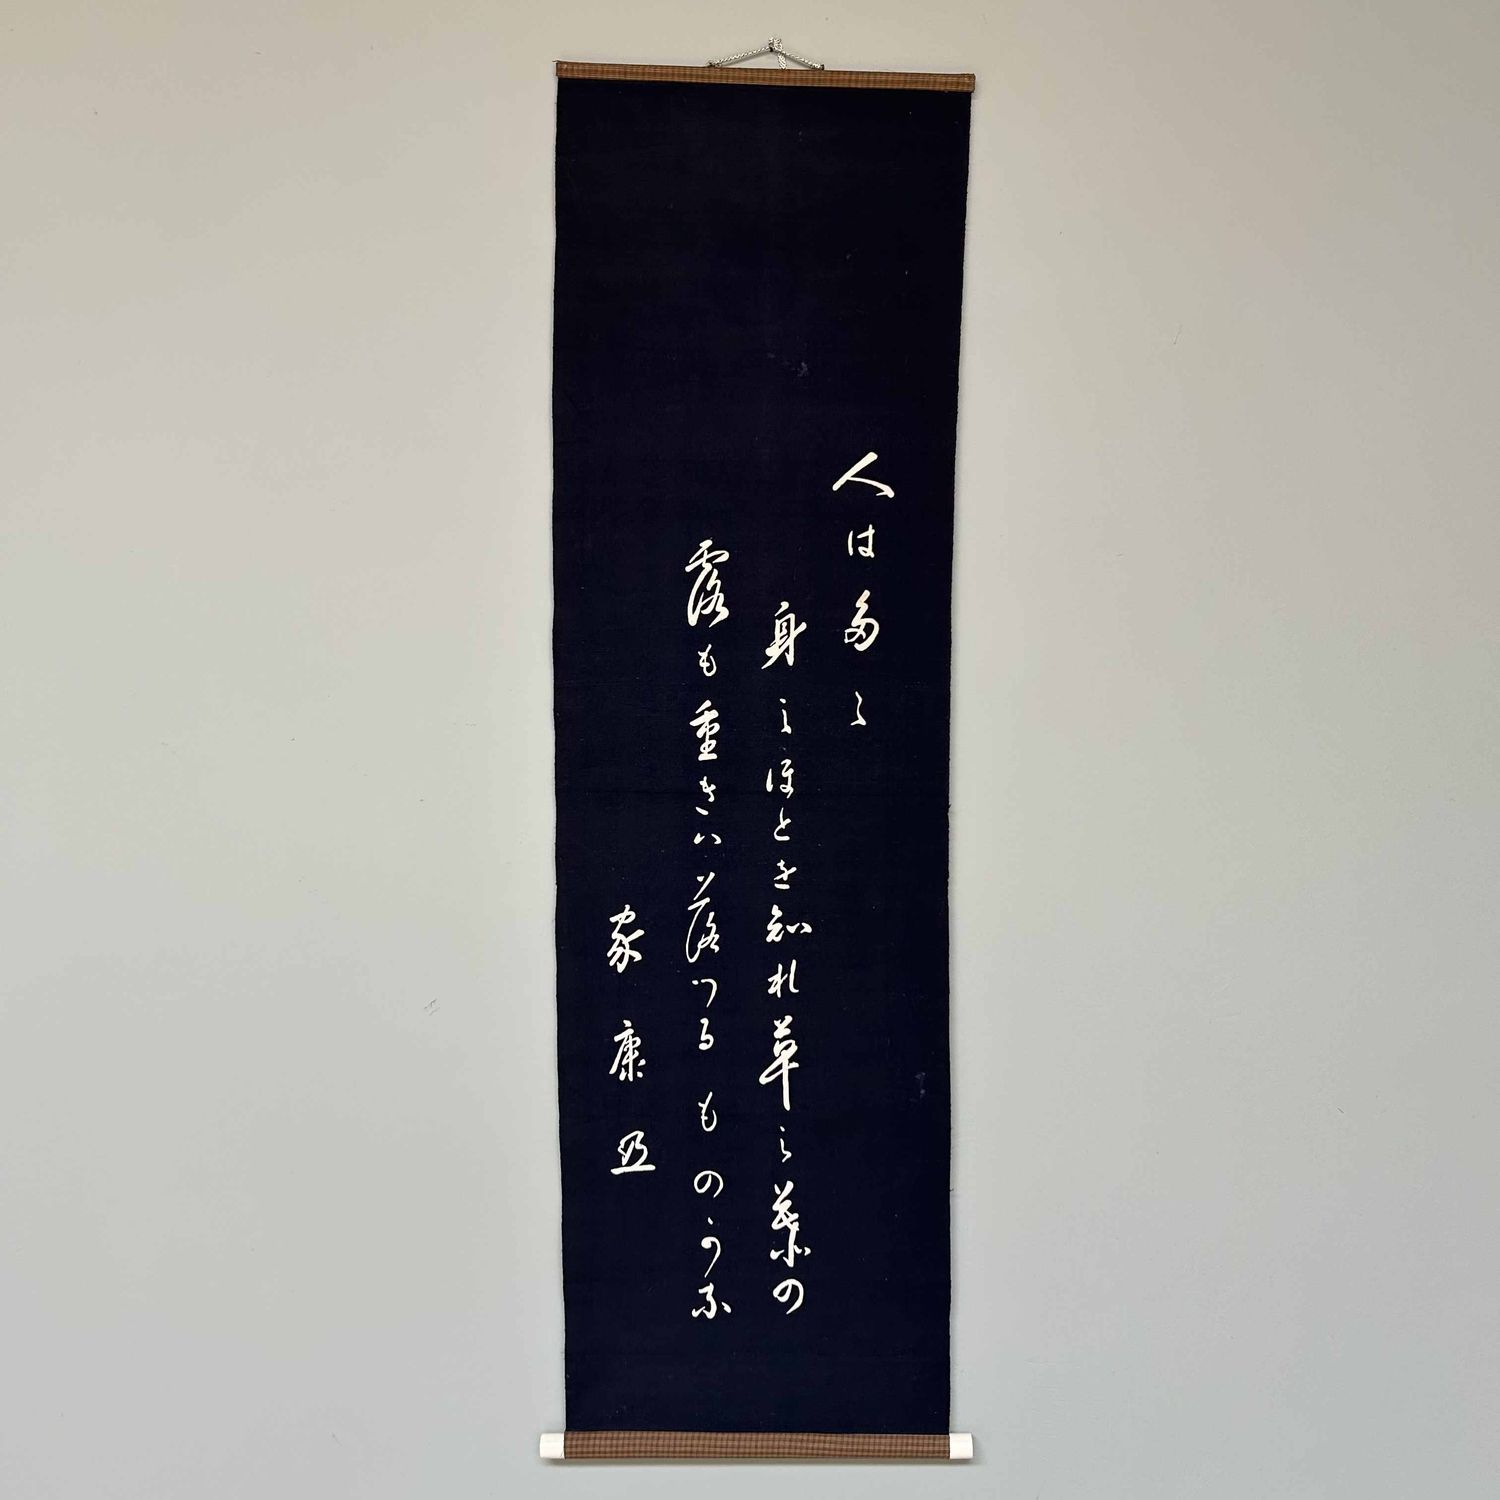 人は多ゝ
身之ほとを知れ草之葉の
露も重きハ落つるものかな
家康